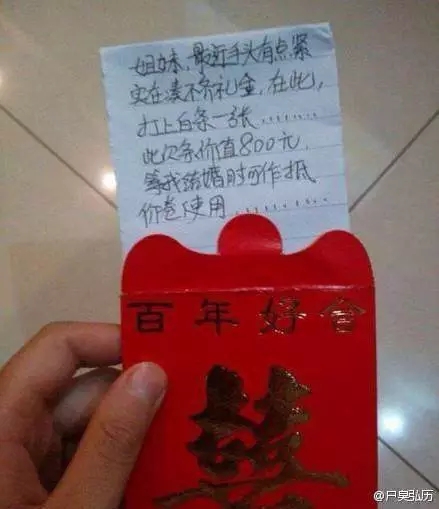 姐妹,最近手头有点紧
实在凑不齐礼金,在此,
打上白条一张.......
此欠条价值800元,
等我结婚时可作抵
价卷使用...........
百年好合
囍
@户臭弘历